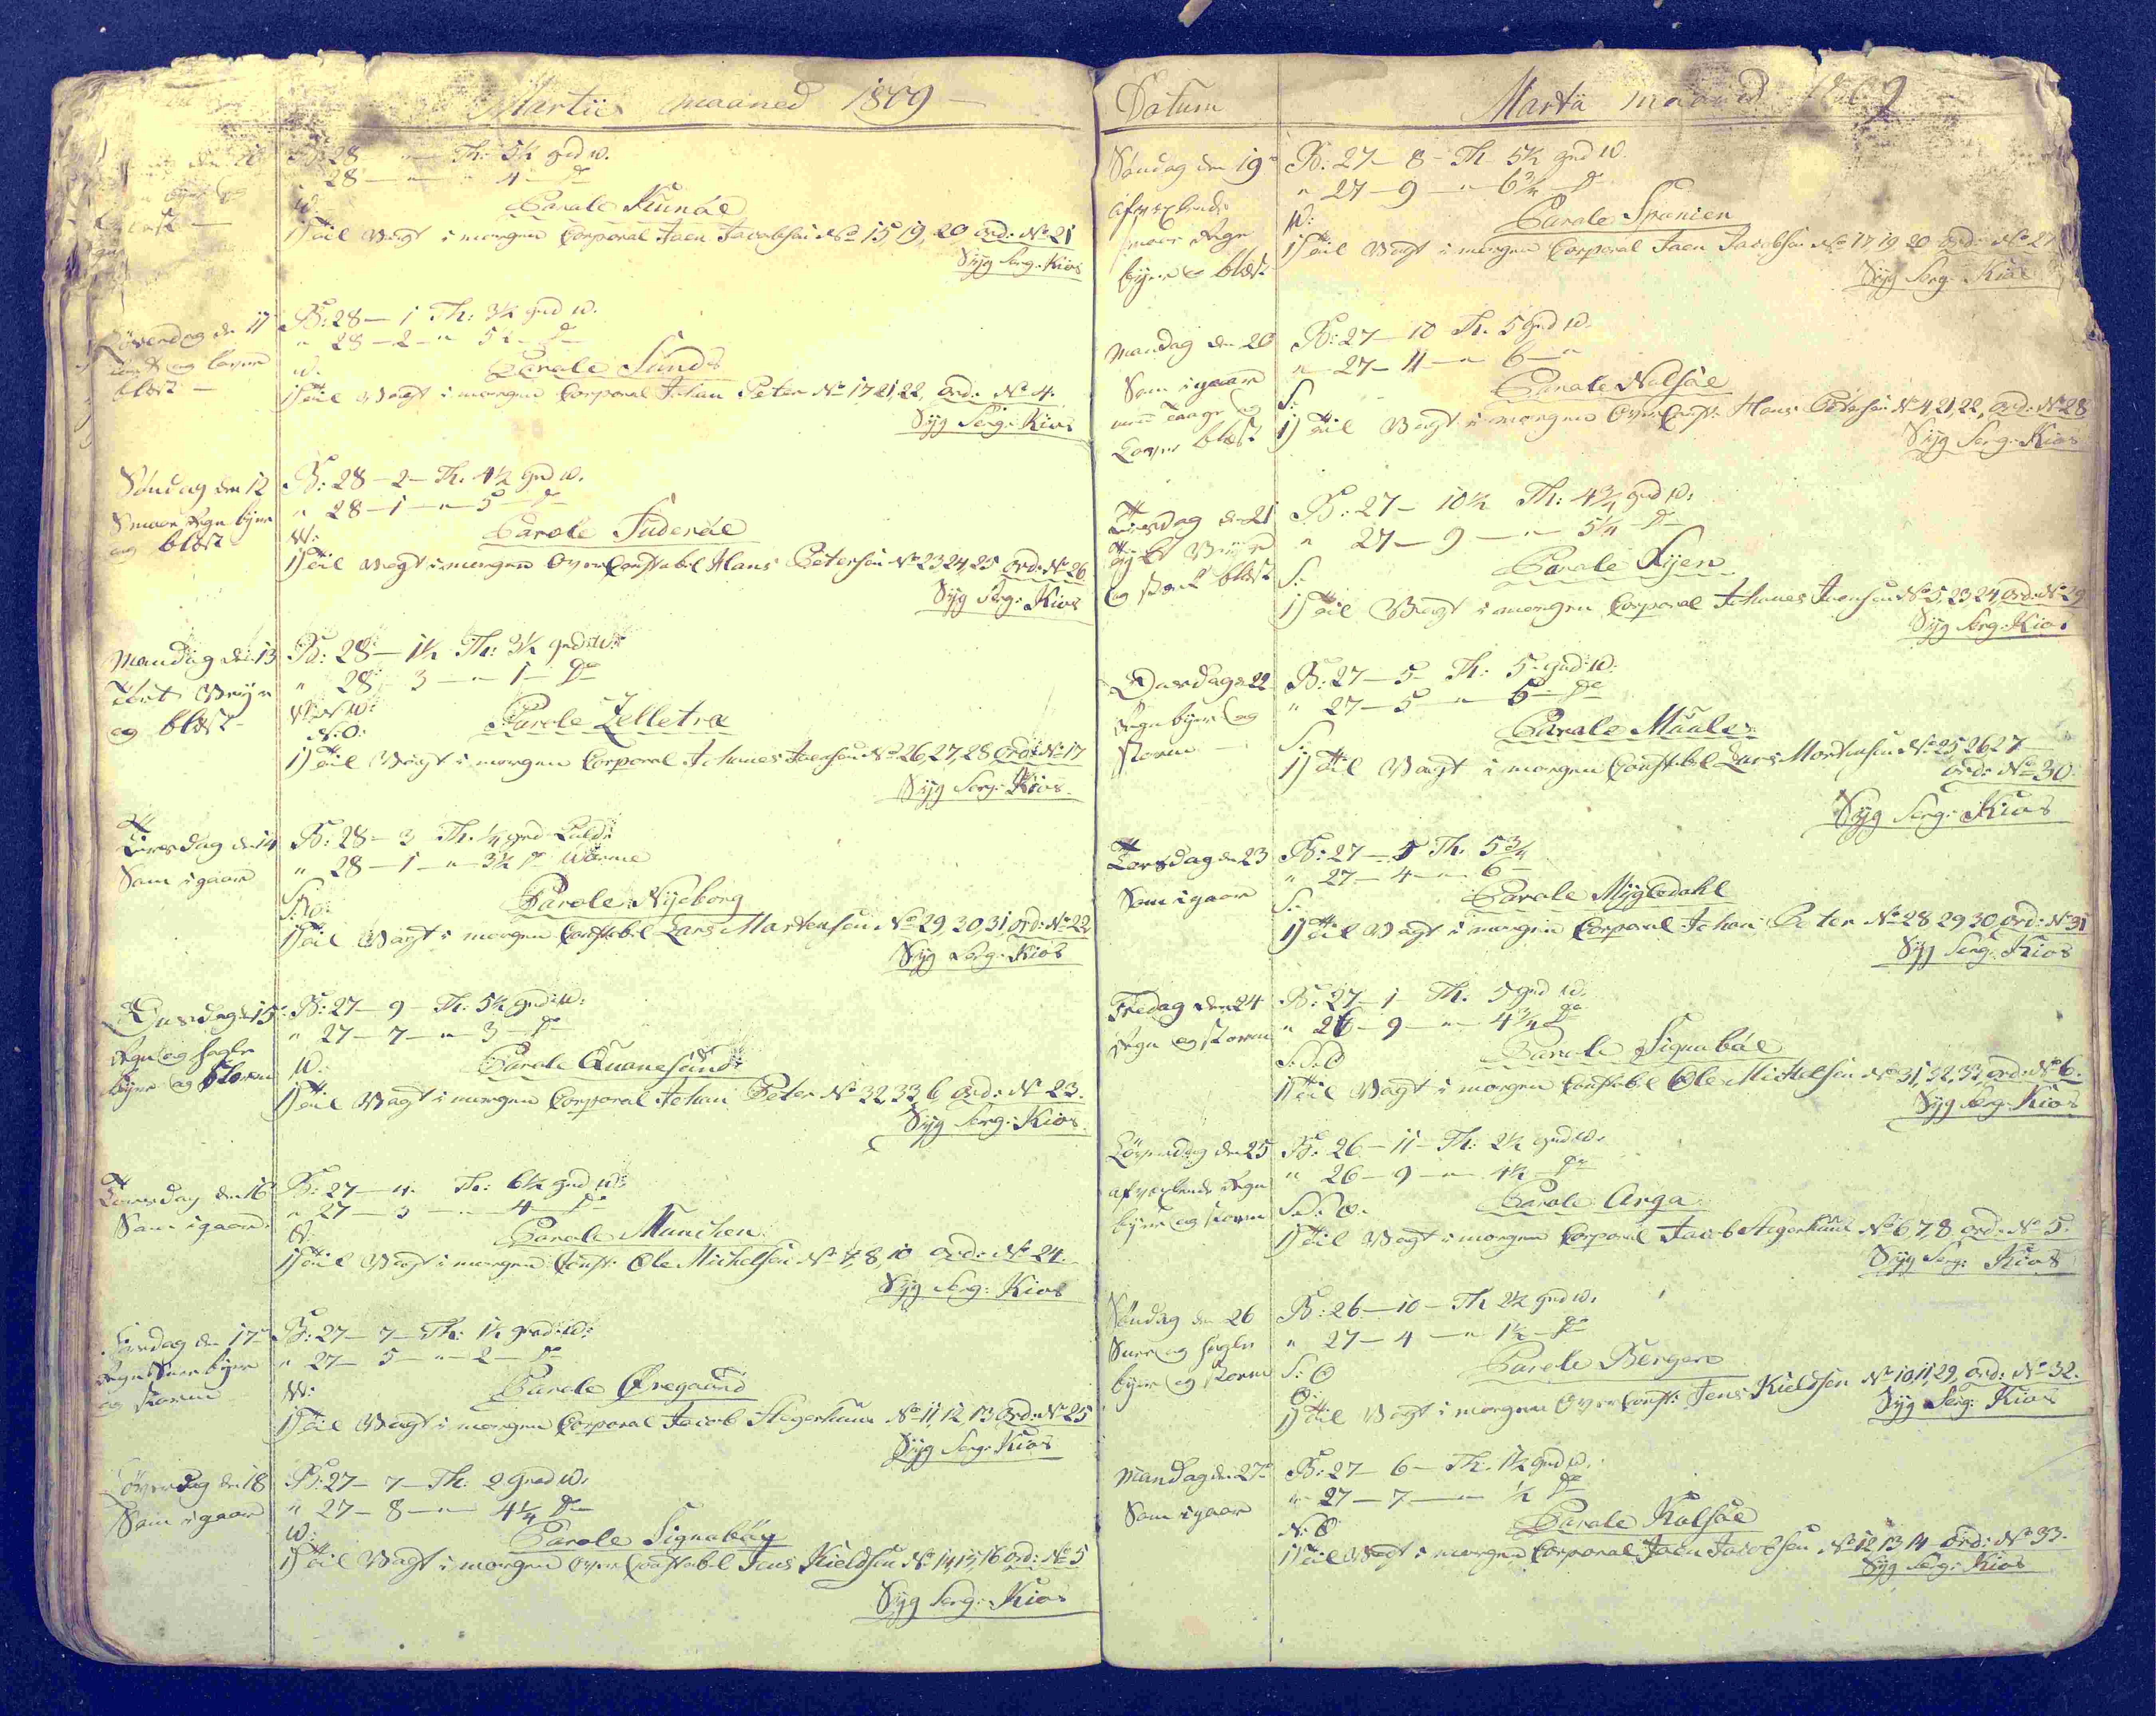 Martii maaned 1809
B: 28 — Th: 5½ grd w.
" 28 — " 4 — do
W:
Parole Kunöe
1) Til Vagt i morgen Corporal Joen Jacobsen No 15 19, 20 Ord: No 21
Syg Serg: Kiós
Löverdag den 11
blæst —
B: 28 — 1 Th: 3½ grd w.
" 28 — 2 — " 5½ — do
W.
Parole Sund
1) Til Vagt i morgen Corporal Johan Peter No 17 21, 22, Ord: No 4.
Syg Serg: Kiós
Söndag den 12
Smaae Regn byer
og blæst
B: 28 — 2 — Th. 4½ grd w.
" 28 — 1 — " 5 — do
W:
Parole Suderöe
1) Til Vagt i morgen OverConstabel Hans Petersen No 23 24, 25 Ord: No 26
Syg Serg: Kiós
Mandag den 13
Tört Veyr
og blæst
B: 28 — 1½ Th: 3½ grd: w:
" 28 3 — " 1 — do
N: O:
Parole Zelletræ
1) Til Vagt i morgen Corporal Johanes Joensen No 26, 27, 28 Ord: No 17
Syg Serg: Kiós
Tirsdag den 14
Som igaar
B: 28 — 3 Th. ¼ grd Kuld:
" 28 — 1 — " 3½ do Varme
S: W:
Parole Nyeborg
1) Til Vagt i morgen Constabel Lars Martensen No 29, 30, 31, Ord: No 22
Syg Serg: Kiós
Onsdag d 15
Regn og hagle
byer og Storm
B: 27 — 9 — Th: 5½ grd: w:
" 27 — 7 — " 3 — do
W:
Parole Quanesund
1) Til Vagt i morgen Corporal Johan Peter No 32, 33, 6, Ord: No 23.
Syg Serg: Kiós
Torsdag den 16
Som igaar
B: 27 — 4. Th: 6½ grd w:
" 27 — 3 — " 4 — do
Parole Munchen
1) Til Vagt i morgen Const: Ole Michelsen No 7, 8, 10 Ord: No 24.
Syg Serg: Kiós
Fredag den 17
Regn Snee byer
og Storm
B: 27 — 7 — Th: 1½ grd: w:
" 27 — 5 — " 2 — do
W:
Parole Öregaund
1) Til Vagt i morgen Corporal Jacob Stegerhuus No 11, 12, 13 Ord: No 25
Syg Serg: Kiós
Löverdag den 18
Som igaar
B: 27 — 7 — Th: 2 grad w.
" 27 — 8 — " 4¼ do
W:
Parole Signaböy
1) Til Vagt i morgen OverConstabel Jens Kieldsen No 14, 15, 16 Ord: No 5
Syg Serg: Kiós
Datum Martii maaned 1809
Söndag den 19
afvexlende
smaae Regn
byer og blæst
B: 27 — 8 — Th 5½ grd w.
" 27 — 9 — " 6¾ do
W:
Parole Spanien
1) Til Vagt i morgen Corporal Joen Jacobsen No 17 19 20 Ord: No 27
Syg Serg: Kiós
Mandag den 20
Som igaar
med Taage og
Lagre blæst
B: 27 — 10 Th. 5 grd w.
" 27 — 11 — " 6 — "
S:
Parole Nolsöe
1) Til Vagt i morgen OverConst: Hans Petersen No 4, 21, 22, Ord: No 28
Syg Serg: Kiós
Tirsdag den 21
tykt Veyr
og stærk blæst
B: 27 — 10½ Th: 4¾ grd w:
" 27 — 9 — " 5¼ do
S:
Parole Fyen
1) Til Vagt i morgen Corporal Johanes Joensen No 5, 23 24, Ord: No 29
Syg Serg: Kiós
Onsdag d 22
Regn byer og
storm —
B: 27 — 5 — Th: 5 grd: w:
" 27 — 5 — " 6 — do
S:
Parole Maale
1) Til Vagt i morgen Constabel Lars Mortensen No 25 26 27
Ord: No 30.
Syg Serg: Kiós
Torsdag den 23
Som igaar
B: 27 — 5 Th. 5¾
" 27 — 4 — " 6 —
S:
Parole Mygledahl
1) Til Vagt i morgen Corporal Johan Peter No 28 29 30, Ord: No 31
Syg Serg: Kiós
Fredag den 24
Regn og storm
B: 27 — 1 — Th. 5 grd w.
" 26 — 9 — " 4¾ do
S: S: O
Parole Signaböe
1) Til Vagt i morgen Constabel Ole Michelsen No 31, 32, 33, Ord: No 6.
Syg Serg: Kiós
Löverdag den 25
afvexlende Regn
byer og storm
B: 26 — 11 — Th: 2½ grd w.
" 26 — 9 — " 4½ — do
S: S: O.
Parole Arga
1) Til Vagt i morgen Corporal Jacob Stegerhuus No 6, 7, 8 Ord: No 5.
Syg Serg: Kiós
Söndag den 26
Snee og hagle
byer og storm
B: 26 — 10 — Th 2½ grd w.
" 27 — 4 — " 1½ — do
S: O
O:
Parole Bergen
1) Til Vagt i morgen OverConst: Jens Kieldsen No 10, 11, 29, Ord: No 32.
Syg Serg: Kiós
Mandag den 27
Som igaar
B: 27 — 6 — Th. 1½ grd w.
" 27 — 7 — " ½ do
N: O:
Parole Kalsöe
1) Til Vagt i morgen Corporal Joen Jacobsen No 12 13 14 Ord: No 33.
Syg Serg: Kiós